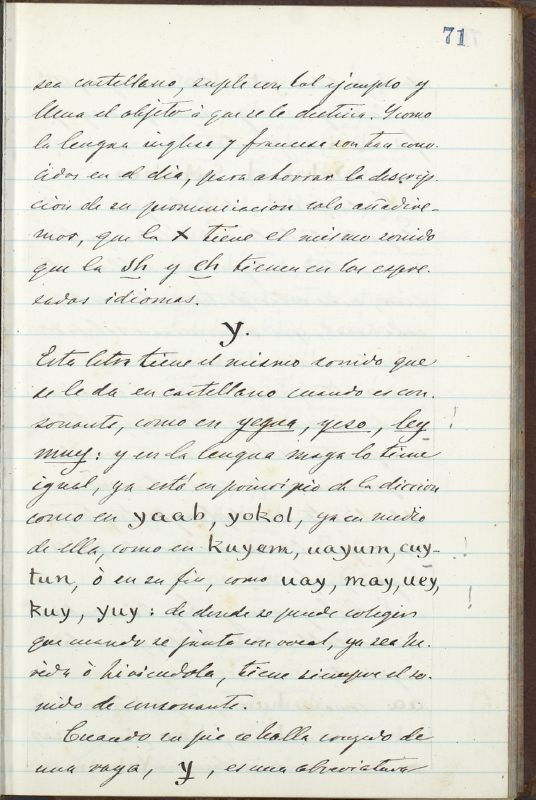 71
sea castellano, suple con tal ejemplo y
llena el objeto à que se le destina. Y como
la lengua inglesa y francesa son tan cono-
cidas en el dia, para ahorrar la descrip-
ción de su pronunciacion solo añadire-
mos, que la x tiene el mismo sonido
que la sh y ch tienen en los espre-
sados idiomas.
y.
Esta letra tiene el mismo sonido que
se le da en castellano cuando es con-
sonante, como en yegua, yeso, ley !
muy: y en la lengua maya lo tiene
igual, ya esté en principio de la diccion
como en yaab, yokol, ya en medio
de ella, como en kuyem, uayum, cuy- !
tun, ò en su fin, como uay, may, uey,
kuy, yuy: de donde se puede colegir !
que cuando se junta con vocal, ya sea he-
rida ò hiriendola, tiene siempre el so-
nido de consonante.
Cuando su pie se halla cruzado de
una raya, y, es una abreviatura